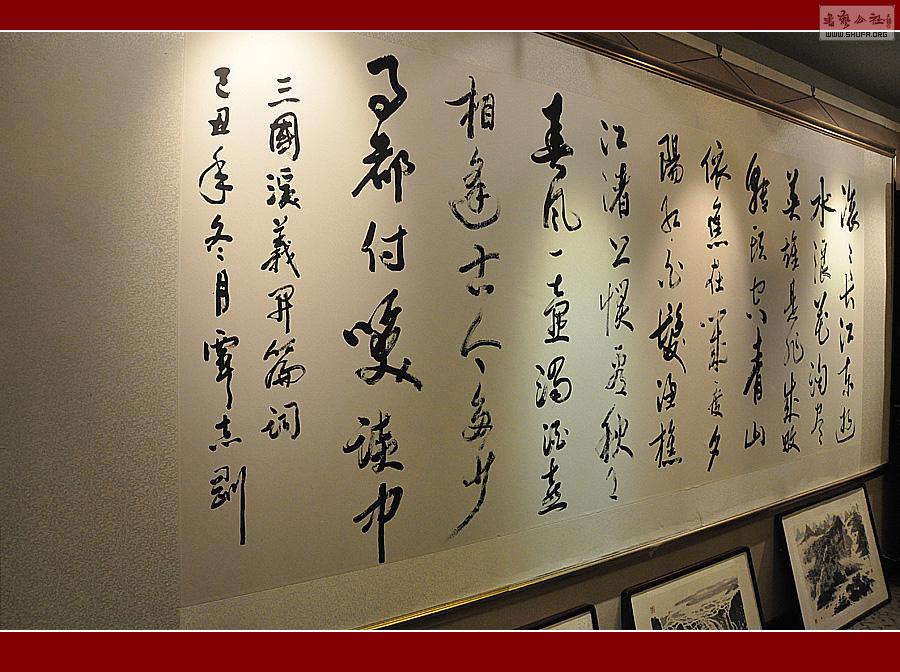 滚滚长江东逝
水浪花淘尽
英雄是非成败
转头空青山
依旧在几度夕
陽红白髮渔樵
江渚上惯看秋月
春风一壶濁酒喜
相逢古今多少
事都付笑谈中
三國演義开篇词
己丑年冬月覃志刚
书艺公社
WWW.SHUFA.ORG